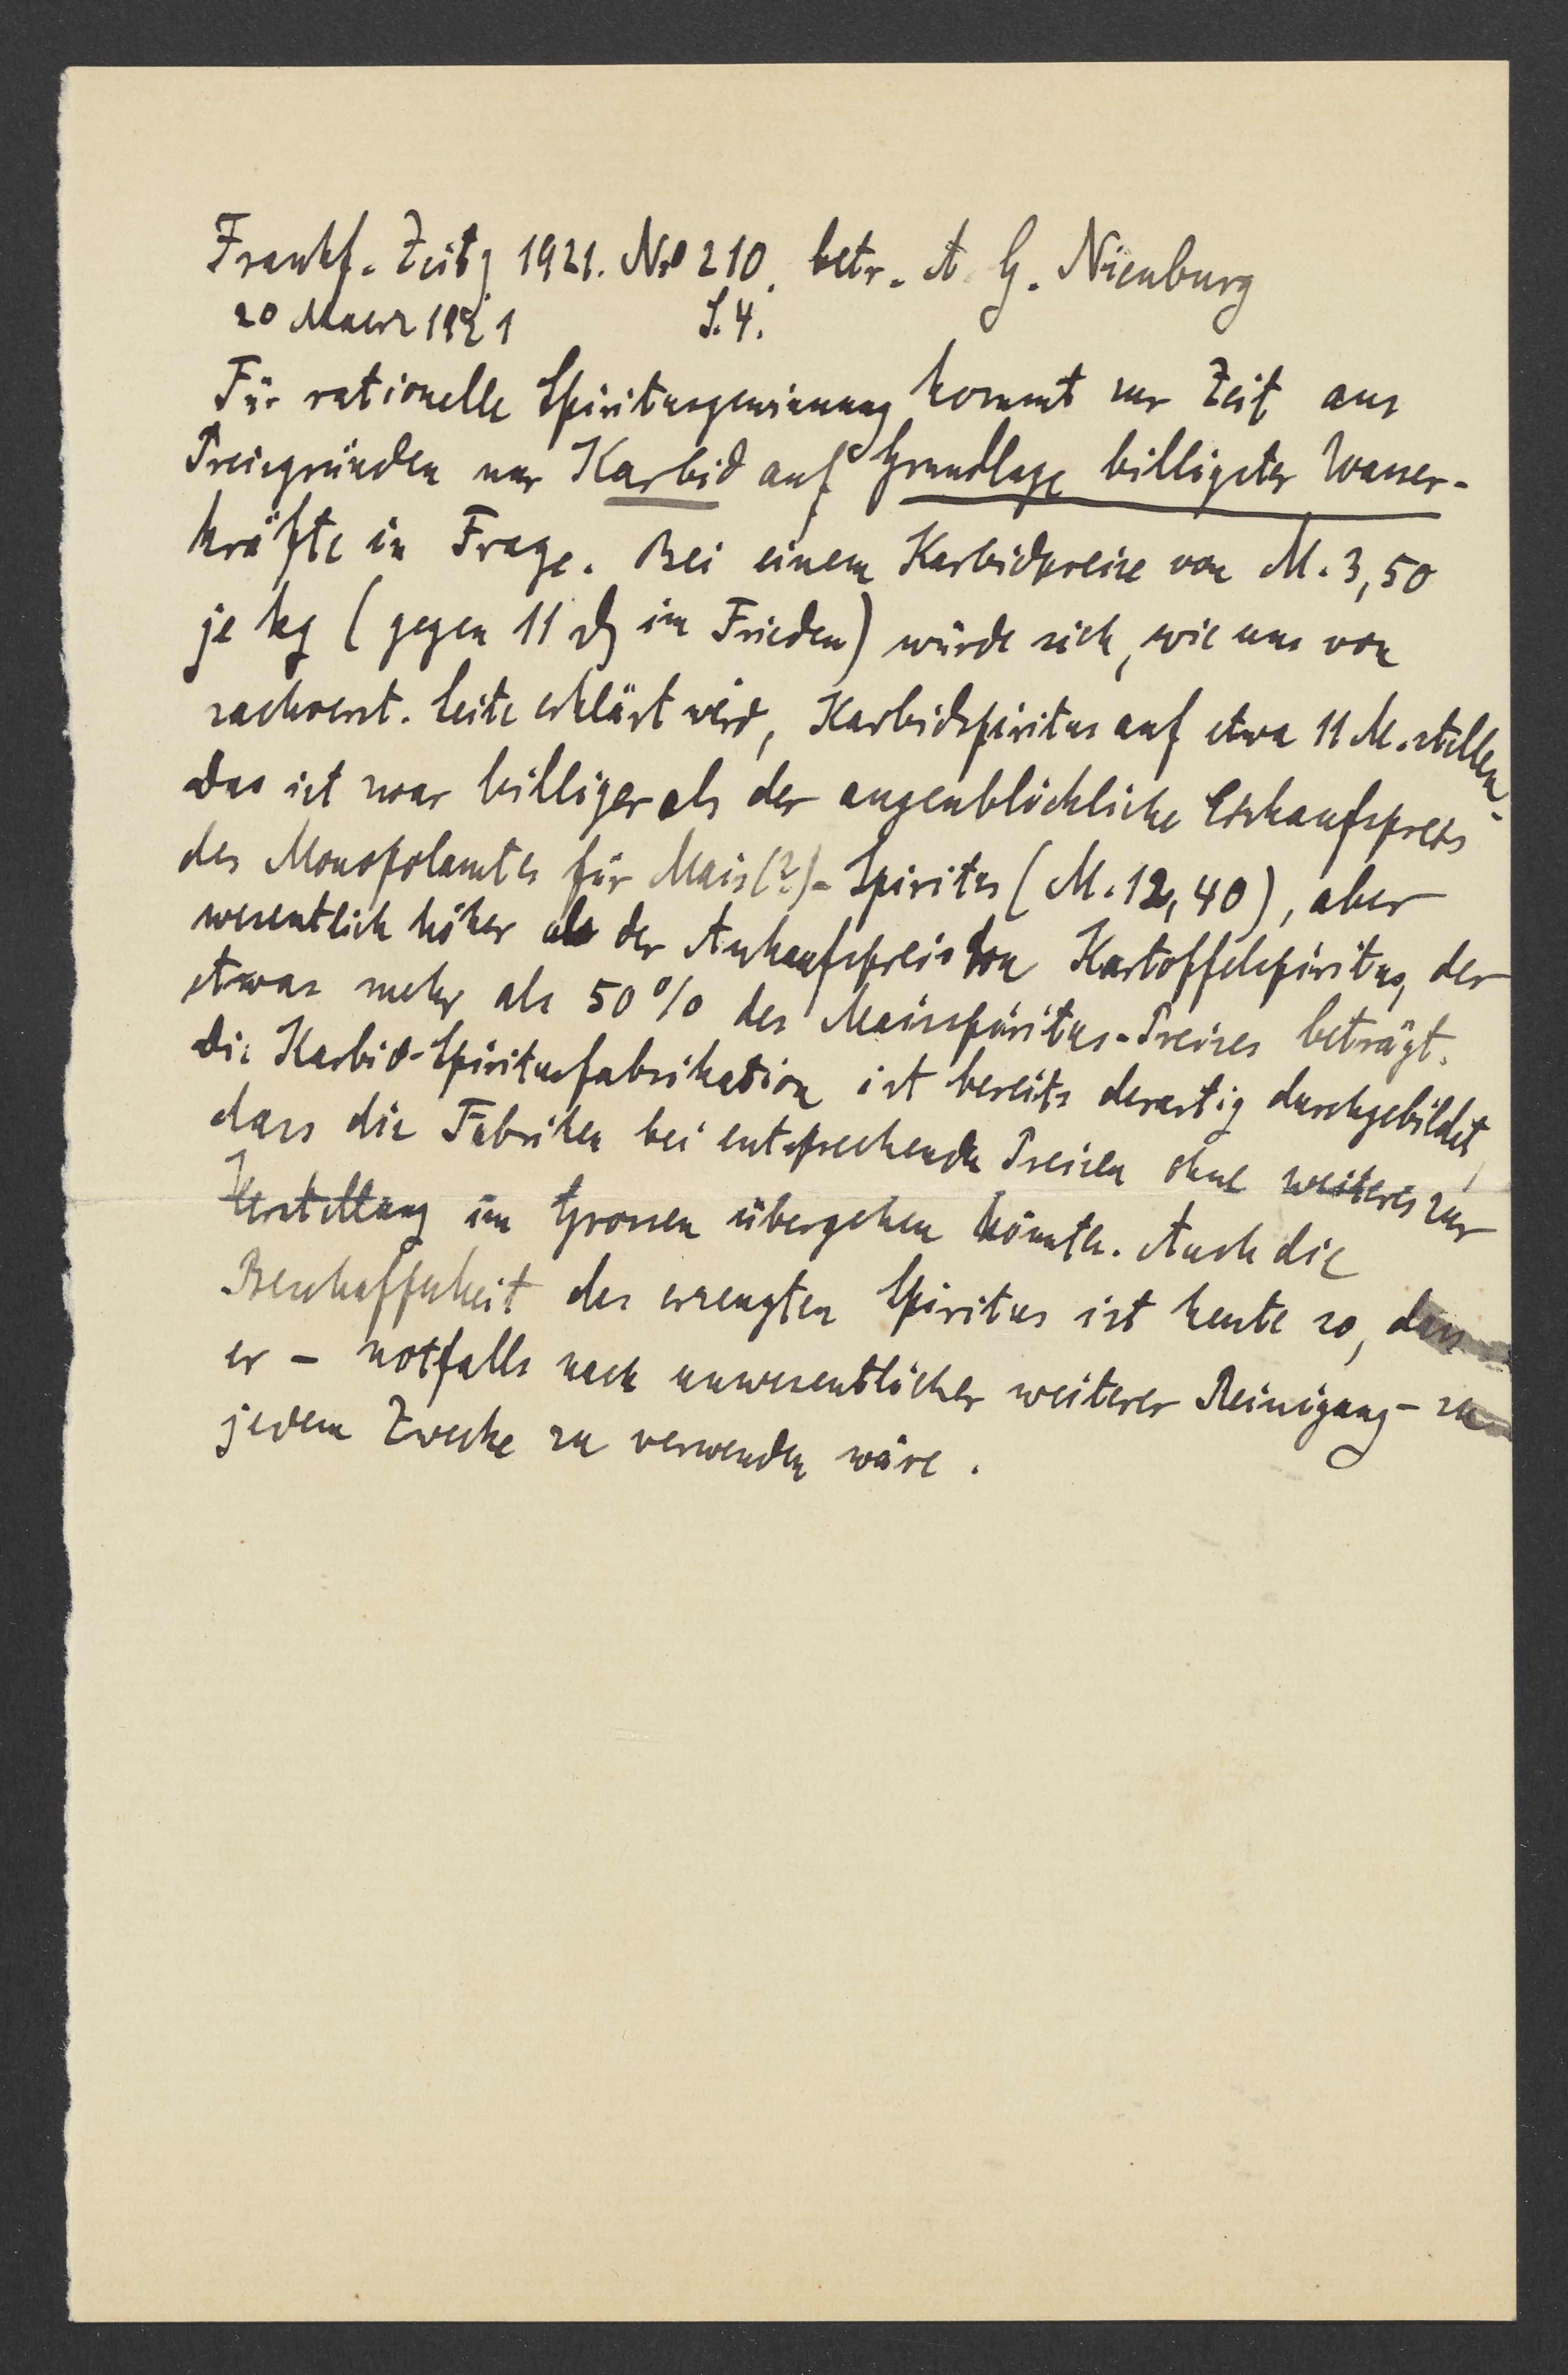 Frankf. Zeitg 1921. No 210. betr. A. G. Nienburg
20 Maerz 1921 S. 4.
Für rationelle Spiritusgewinnung kommt zur Zeit aus
Preisgründen nur Karbid auf Grundlage billigster Wasser-
kräfte in Frage. Bei einem Karbidpreise von M. 3,50
je kg (gegen 11 ₰ im Frieden) würde sich, wie uns von
sachverst. Seite erklärt wird, Karbidspiritus auf etwa 11 M. stellen.
Das ist zwar billiger als der augenblickliche Ankaufspreis
des Monopolamtes für Mais(?)-Spiritus (M. 12,40), aber
wesentlich höher als der Ankaufspreis von Kartoffelspiritus, der
etwas mehr als 50% des Maisspiritus-Preises beträgt.
Die Karbid-Spiritusfabrikation ist bereits derartig durchgebildet,
dass die Fabriken bei entsprechenden Preisen ohne weiteres zur
Herstellung im Grossen übergehen könnte. Auch die
Beschaffenheit des erzeugten Spiritus ist heute so, dass
er - notfalls nach unwesentlicher weiterer Reinigung - zu
jedem Zwecke zu verwenden wäre.